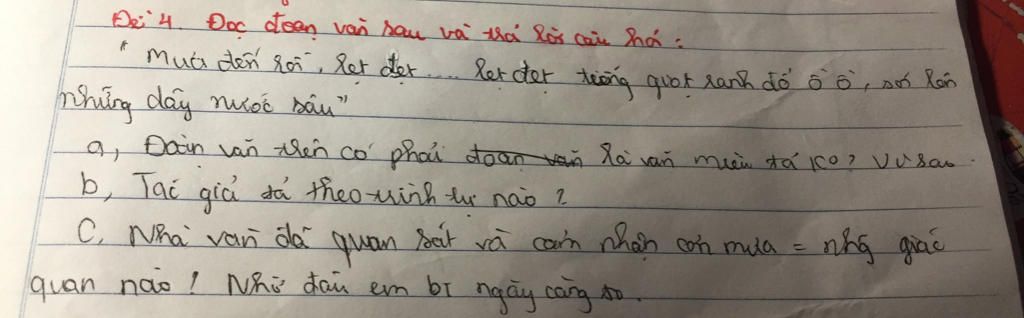 Đề 4. Đọc đoạn văn sau và trả lời câu hỏi:
" Mưa đến rồi, lẹt đẹt .... lẹt đẹt quạt ranh đỏ ồ ồ,
những dãy nước sâu"
a, Đoàn văn trên có phải đoạn văn là văn miêu tả ko? Vì sao
b, Tác giả tả theo trình tự nào?
C, Nhà văn đã quan sát và cảm nhận cơn mưa = nhg giác
quan nào! Nhờ đâu em bt ngày càng